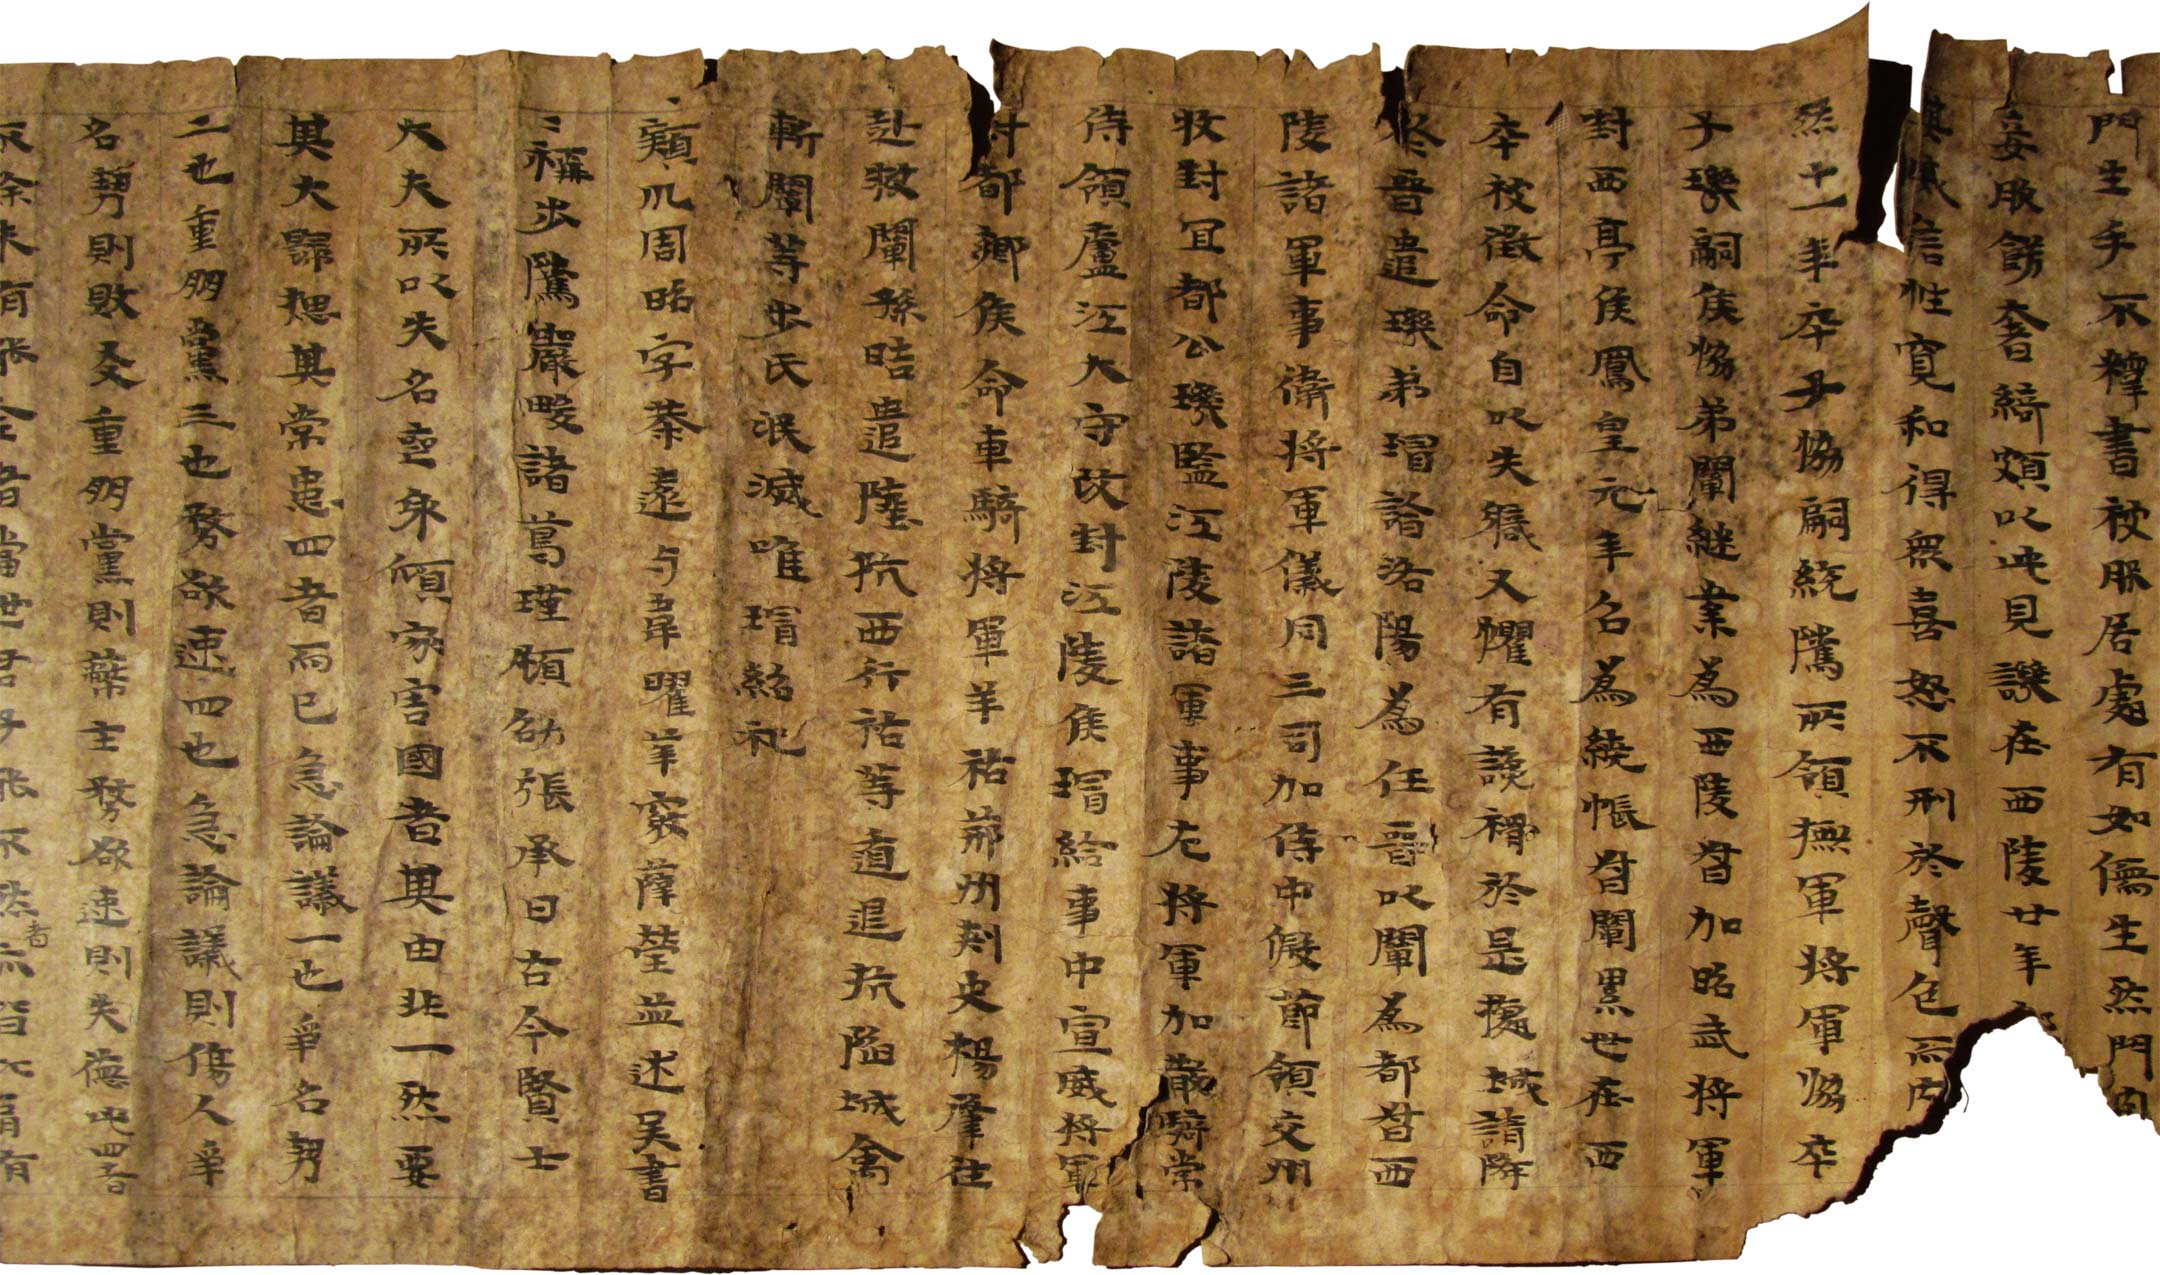 門生手不釋書被服居處有如儒生然門內
妾服飾奢綺頗以此見譏在西陵廿年
其威信性寬和得衆喜怒不刑於聲色而內
然十一年卒子協嗣統騭所領撫軍將軍協卒
子璣嗣侯協弟闡繼業為西陵督加昭武將軍
封西亭侯鳳皇元年召為繞帳督闡累世在西
卒被徵命自以失職又懼有讒禍於是據城請降
於晋遣璣弟璿詣洛陽為任晋以闡為都督西
陵諸軍事衛將軍儀同三司加侍中假節領交州
牧封宜都公璣監江陵諸軍事左將軍加散騎常
侍領廬江大守改封江陵侯璿給事中宣威將軍
封都鄉侯命車騎將軍羊祜荊州刺史楊肇往
赴救闡孫晧遣陸抗西行祜等遁退抗陷城禽
斬闡等步氏泯滅唯璿紹祀
潁川周昭字恭遠与韋曜華覈薛瑩並述吳書
〻稱步騭嚴畯諸葛瑾顧劭張承曰古今賢士
大夫所以失名喪身傾家害國者其由非一然要
其大歸揔其常患四者而已急論議一也爭名勢
二也重朋黨三也務欲速四也急論議則傷人爭
名勢則敗友重朋黨則蔽主務欲速則失德此四者
不除未有能全者當世君子能不然者亦皆比肩有